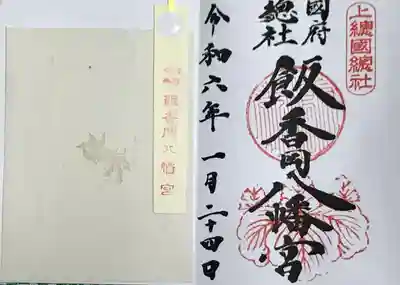 上總國總社
國府
總社
飯香岡八幡宮
令和六年一月二十四日
飯香岡八幡宮